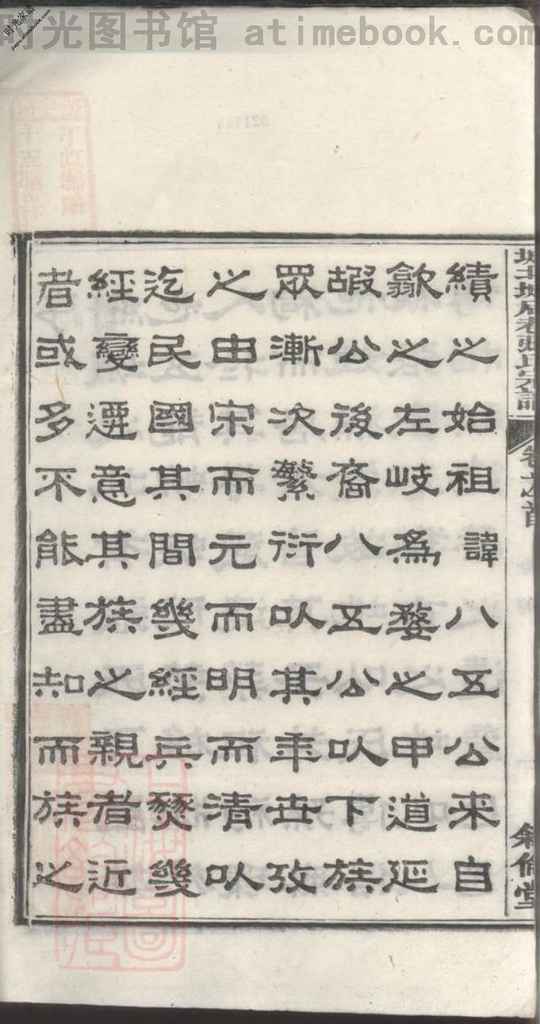 时光图书馆 atimebook.com
績之始祖諱八五公来自
歙之左岐爲婺之甲道延
嘏公後裔八五公以下族
眾漸次蘩衍以其年世攷
之由宋而元而明而清以
迄民國其間幾經兵燹幾
經變遷意其族之親者近
者或多不能盡知而族之